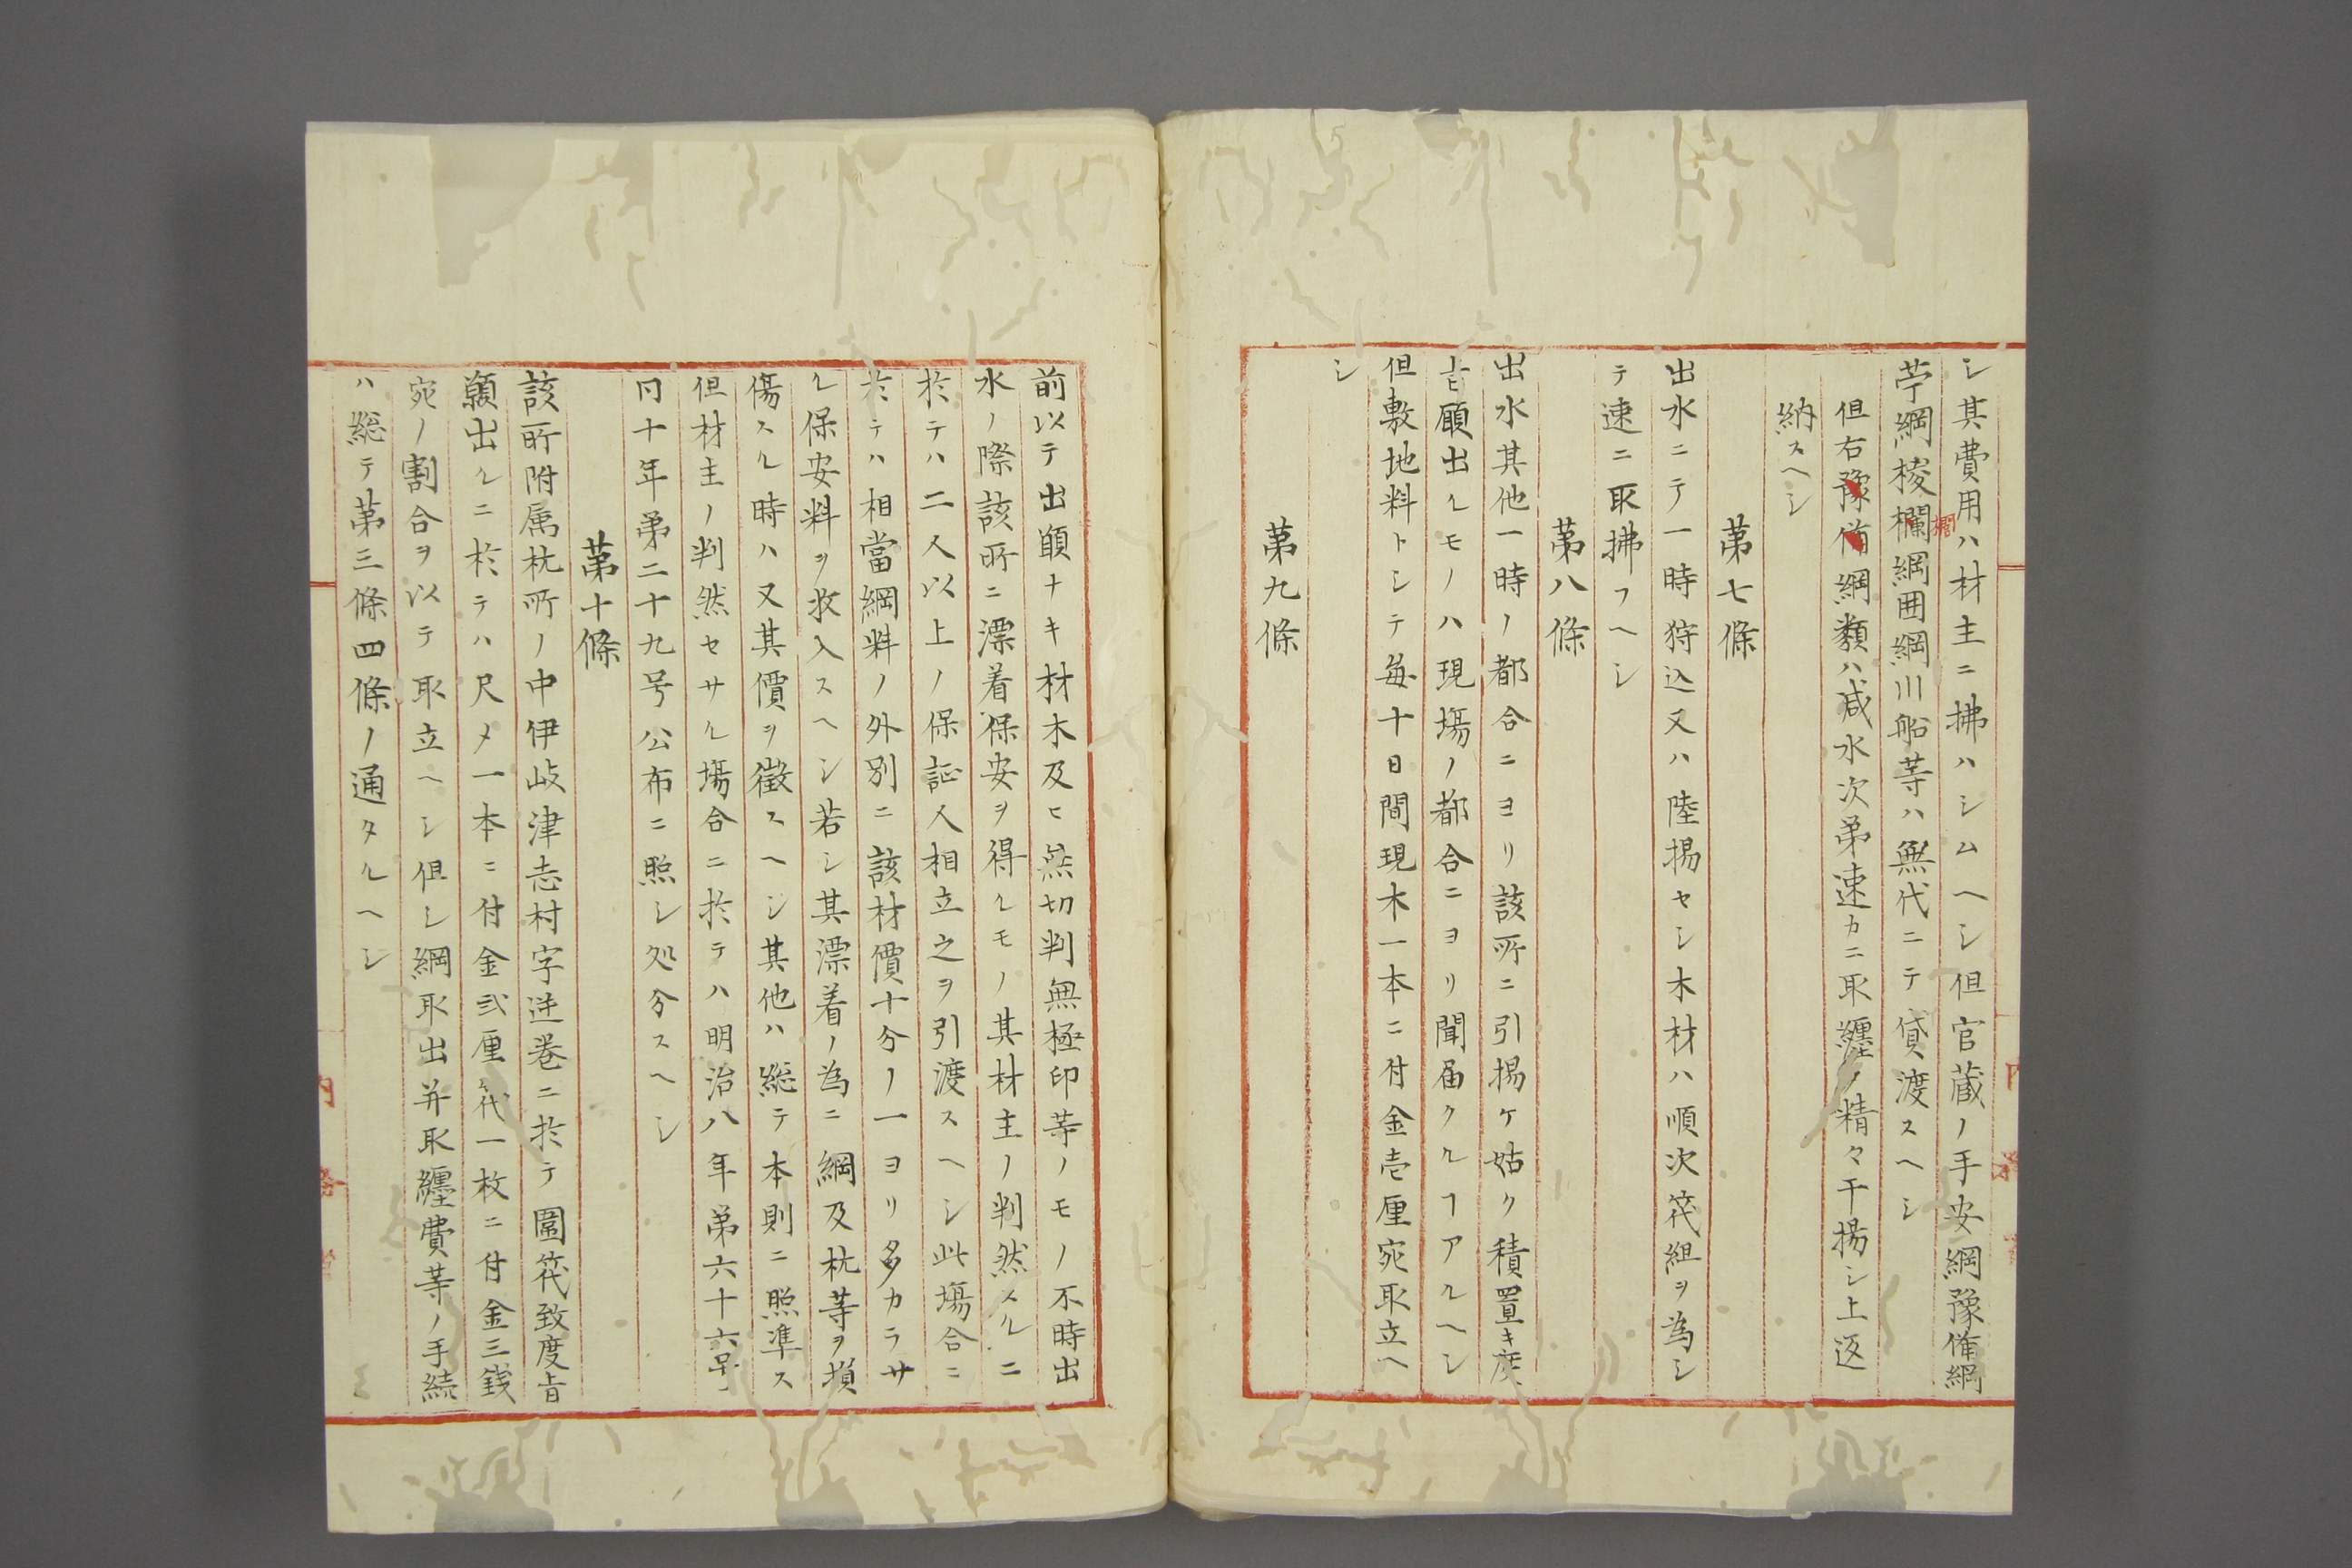 シ其費用ハ材主ニ拂ハシムヘシ但官蔵ノ手安綱豫備綱
苧綱棱欄綱囲綱川船等ハ無代ニテ貸渡スヘシ
櫚
但右豫備綱類ハ減水次第速カニ取纒メ精々干揚シ上返
納スヘシ
第七條
出水ニテ一時狩込又ハ陸揚セシ木材ハ順次筏組ヲ為シ
テ速ニ取拂フヘシ
第八條
出水其他一時ノ都合ニヨリ該所ニ引揚ケ姑ク積置キ度
旨願出ルモノハ現場ノ都合ニヨリ聞届クルヿアルヘシ
但敷地料トシテ毎十日間現木一本ニ付金壱厘宛取立ヘ
シ
第九條
前以テ出願ナキ材木及ヒ無切判無極印等ノモノ不時出
水ノ際該所ニ漂着保安ヲ得ルモノ其材主ノ判然スルニ
於テハ二人以上ノ保証人相立之ヲ引渡スヘシ此場合ニ
於テハ相當綱料ノ外別ニ該材價十分ノ一ヨリ多カラサ
ル保安料ヲ収入スヘシ若シ其漂着ノ為ニ綱及杭等ヲ損
傷スル時ハ又其價ヲ徴スヘシ其他ハ総テ本則ニ照準ス
但材主ノ判然セサル場合ニ於テハ明治八年第六十六号
同十年第二十九号公布ニ照シ処分スヘシ
第十條
該所附属杭所ノ中伊岐津志村字逆巻ニ於テ圍筏致度旨
願出ルニ於テハ尺〆一本ニ付金弐厘筏一枚ニ付金三銭
宛ノ割合ヲ以テ取立ヘシ但シ綱取出并取纒費等ノ手続
ハ総テ第三條四條ノ通タルヘシ